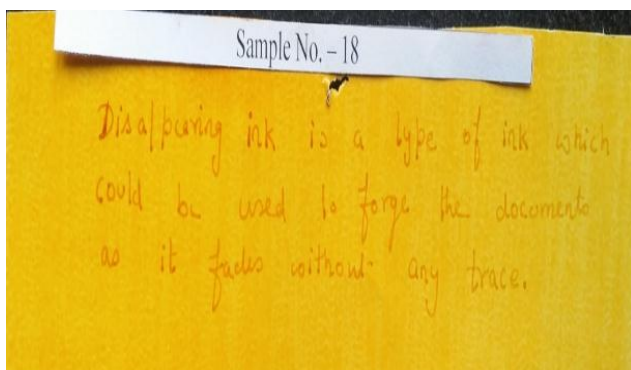 Sample No. – 18
Disappearing ink is a type of ink which
could be used to forge the documents
as it fades without any trace.